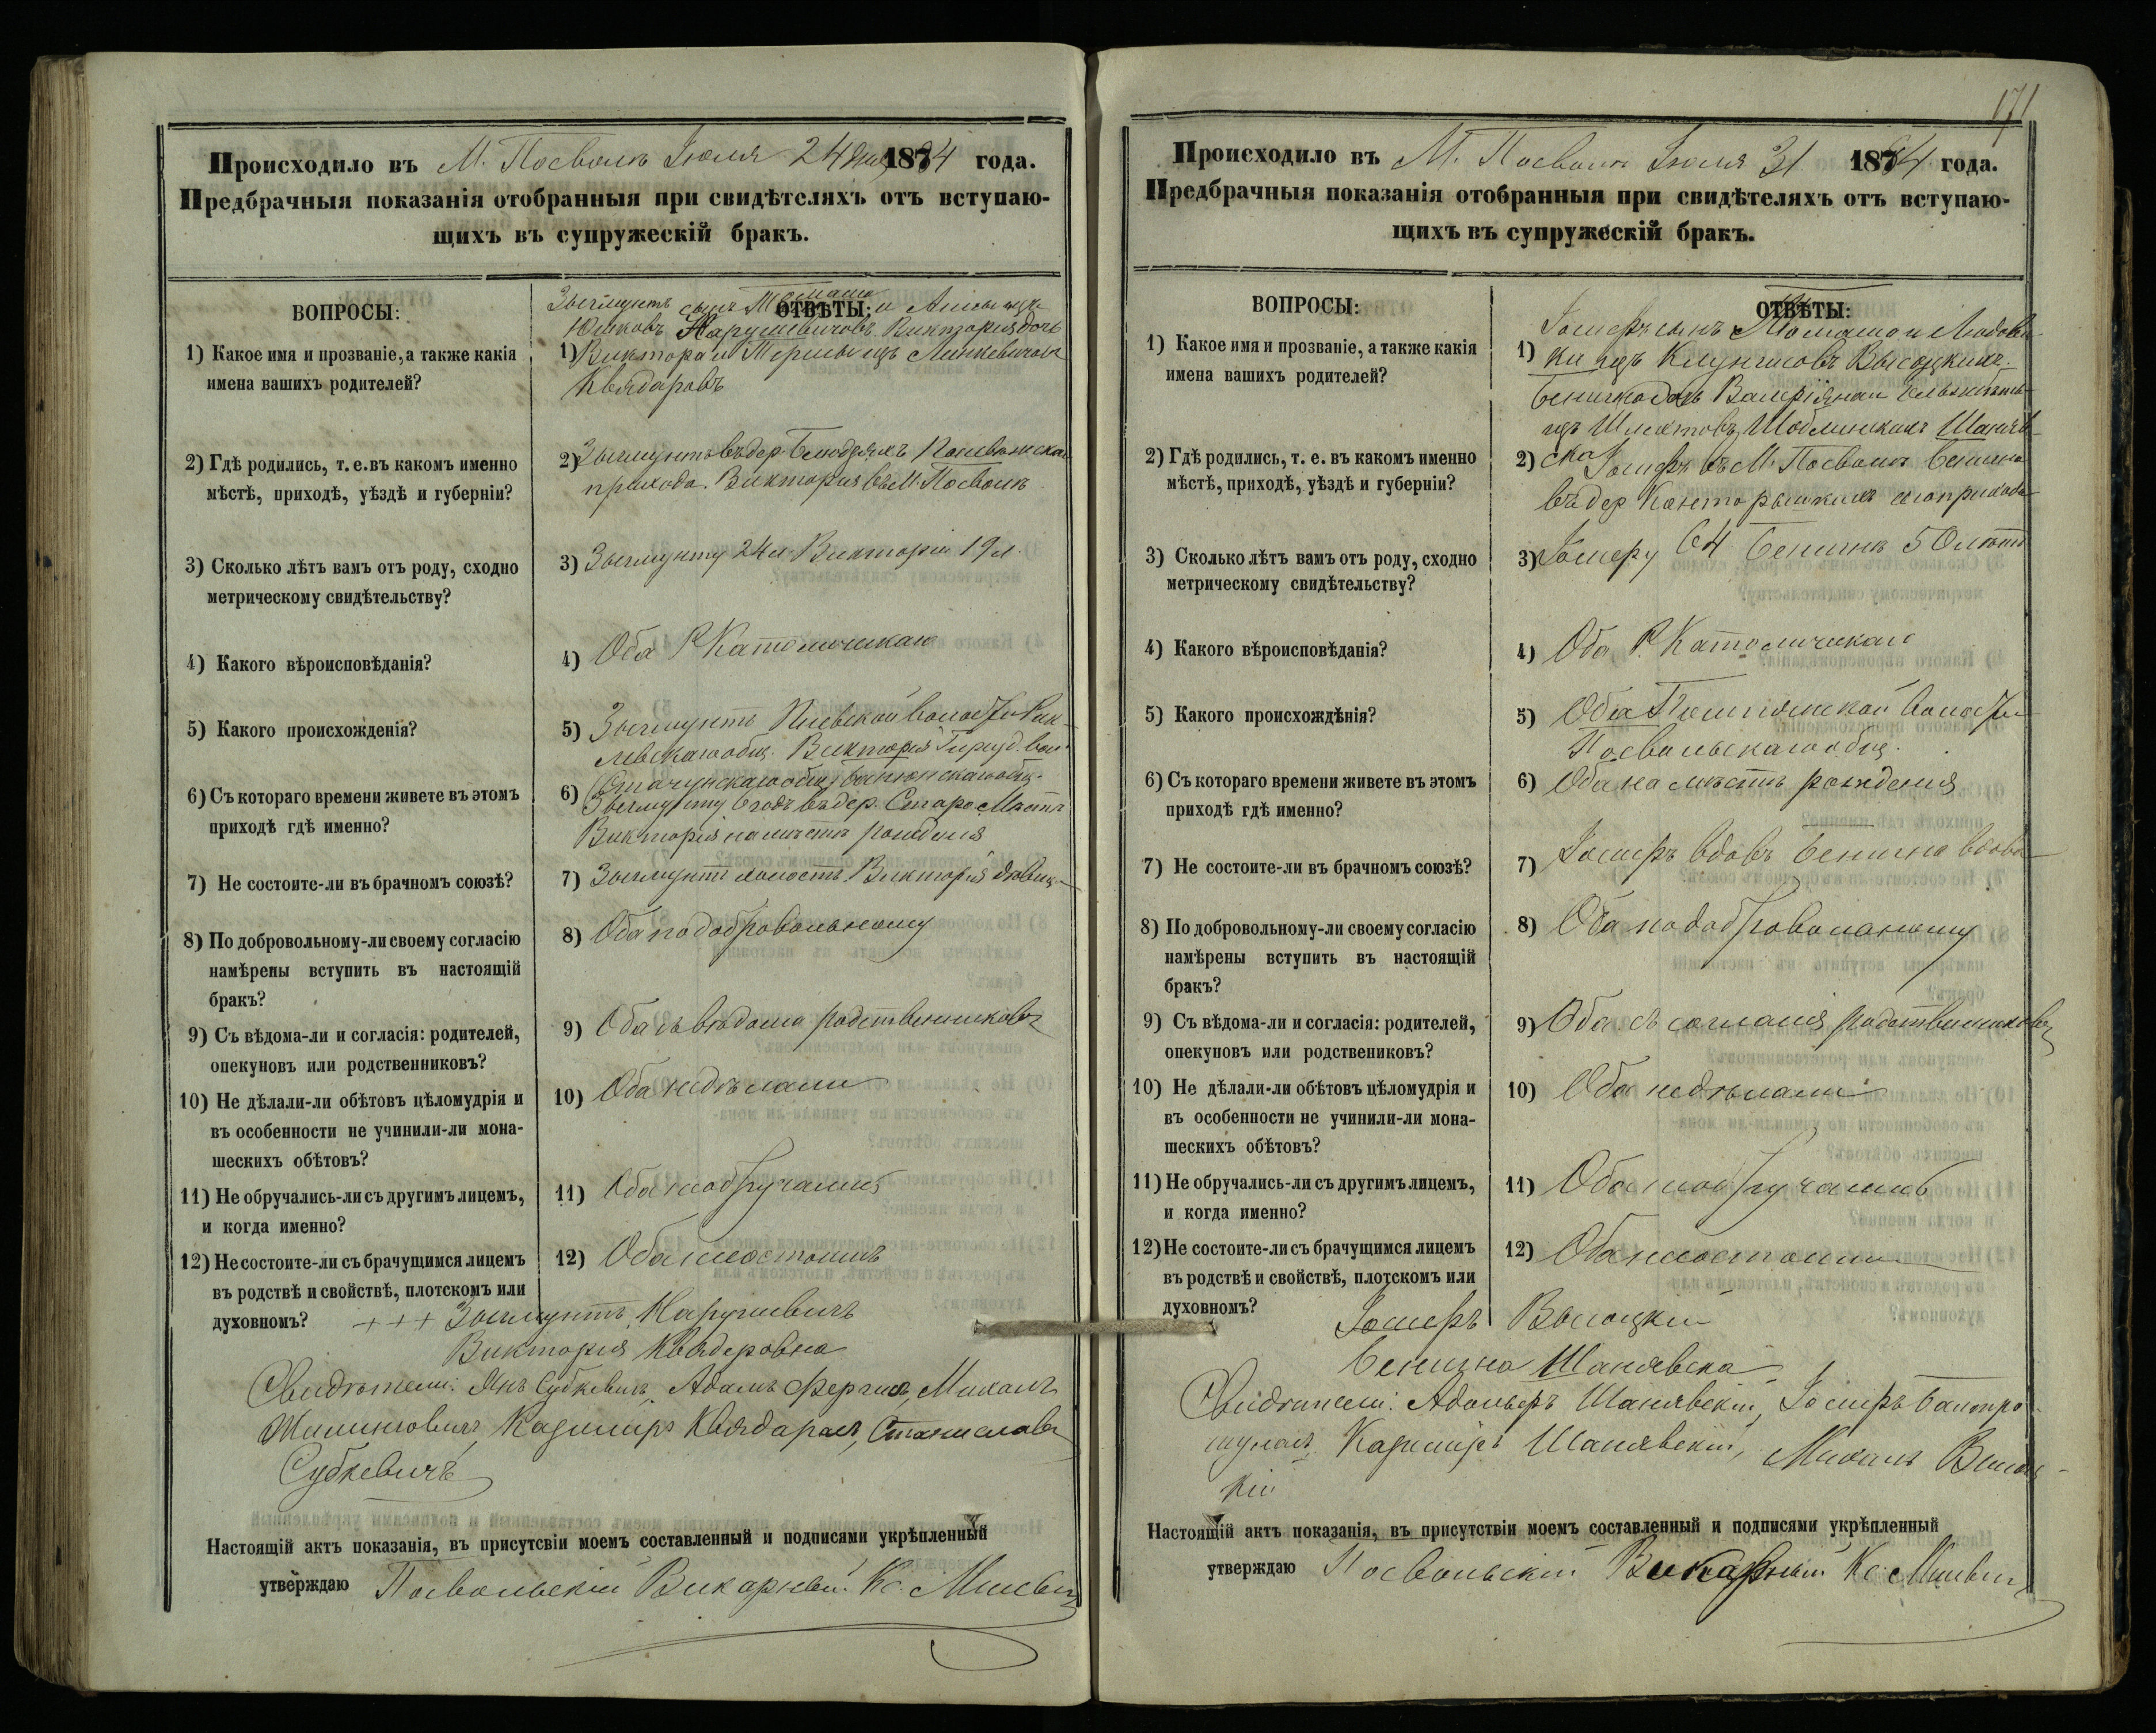 Происходило въ М. Посволь Іюля 24 дня 1884 года.
Предбрачныя показанія отобранныя при свидѣтеляхъ отъ вступаю-
щихъ въ супружескій бракъ.
ВОПРОСЫ:
ОТВѢТЫ:
Зыгмунтъ сынъ Томаша и
Юшковъ Нарушевичовъ Викторія дочь
1) Какое имя и прозваніе, а также какія
имена вашихъ родителей?
1) Виктора и Терезы изъ Линкевичовъ
Квядаровъ
2) Гдѣ родились, т. е. въ какомъ именно
мѣстѣ, приходѣ, уѣздѣ и губерніи?
2) Зыгмунтъ въ дер. Посвольскаго
прихода. Викторія въ М. Посволь
3) Сколько лѣтъ вамъ отъ роду, сходно
метрическому свидѣтельству?
3) Зыгмунту 24 л. Викторіи 19 л.
4) Какого вѣроисповѣданія?
4) Оба Р Католическаго
5) Какого происхожденія?
5) Зыгмунтъ волости
общ. Викторія вол.
общ.
6) Съ котораго времени живете въ этомъ
приходѣ гдѣ именно?
6) Зыгмунту 6 годъ въ дер. Старо Мѣстѣ
Викторія на мѣстѣ рожденія
7) Не состоите-ли въ брачномъ союзѣ?
7) Зыгмунтъ холостъ. Викторія дѣвица
8) По добровольному-ли своему согласію
намѣрены вступить въ настоящій
бракъ?
8) Оба по добровольному
9) Съ вѣдома-ли и согласія: родителей,
опекуновъ или родственниковъ?
9) Оба съ вѣдома родственниковъ
10) Не дѣлали-ли обѣтовъ цѣломудрія и
въ особенности не учинили-ли мона-
шескихъ обѣтовъ?
10) Оба недѣлали
11) Не обручались-ли съ другимъ лицемъ,
и когда именно?
11) Оба необручались
12) Не состоите-ли съ брачущимся лицемъ
въ родствѣ и свойствѣ, плотскомъ или
духовномъ?
12) Оба несостоятъ
+++ Зыгмунтъ Нарушевичъ
Викторія Квядеровна
Свидѣтели: Янъ Субкевичъ, Адамъ Михалъ
Казимиръ Квядарасъ, Станиславъ
Субкевичъ
Настоящій актъ показанія, въ присутсвіи моемъ составленный и подписями укрѣпленный
утверждаю Посвольскій Викарный Кс.
171
Происходило въ М. Посволь Іюля 31 1884 года.
Предбрачныя показанія отобранныя при свидѣтеляхъ отъ вступаю-
щихъ въ супружескій бракъ.
ВОПРОСЫ:
ОТВѢТЫ:
Іосифъ сынъ Томаша и Людови-
1) Какое имя и прозваніе, а также какія
имена вашихъ родителей?
1) ки изъ Высоцкихъ
Бенигна дочь Валеріяна и Эльжбеты
изъ Шаняв-
2) Гдѣ родились, т. е. въ какомъ именно
мѣстѣ, приходѣ, уѣздѣ и губерніи?
2) ска Іосифъ въ М. Посволь Бенигна
въ дер прихода
3) Сколько лѣтъ вамъ отъ роду, сходно
метрическому свидѣтельству?
3) Іосифу 64 Бенигнѣ 50 лѣтъ
4) Какого вѣроисповѣданія?
4) Оба Р. Католическаго
5) Какого происхождѣнія?
5) Оба волости
Посвольскаго общ.
6) Съ котораго времени живете въ этомъ
приходѣ гдѣ именно?
6) Оба на мѣстѣ рожденія
7) Не состоите-ли въ брачномъ союзѣ?
7) Іосифъ вдовъ Бенигна вдова
8) По добровольному-ли своему согласію
намѣрены вступить въ настоящій
бракъ?
8) Оба по добровольному
9) Съ вѣдома-ли и согласія: родителей,
опекуновъ или родствениковъ?
9) Оба съ согласія родственниковъ
10) Не дѣлали-ли обѣтовъ цѣломудрія и
въ особенности не учинили-ли мона-
шескихъ обѣтовъ?
10) Оба недѣлали
11) Не обручались-ли съ другимъ лицемъ,
и когда именно?
11) Оба необручались
12) Не состоите-ли съ брачущимся лицемъ
въ родствѣ и свойствѣ, плотскомъ или
духовномъ?
12) Оба несостоятъ
Іосифъ Высоцкій
Бенигна Шанявска
Свидѣтели: Адольфъ Шанявскій, Іосифъ
Казимиръ Шанявскій, Михалъ Высоц-
кій
Настоящій актъ показанія, въ присутствіи моемъ составленный и подписями укрѣпленный
утверждаю Посвольскій Викарный Кс.